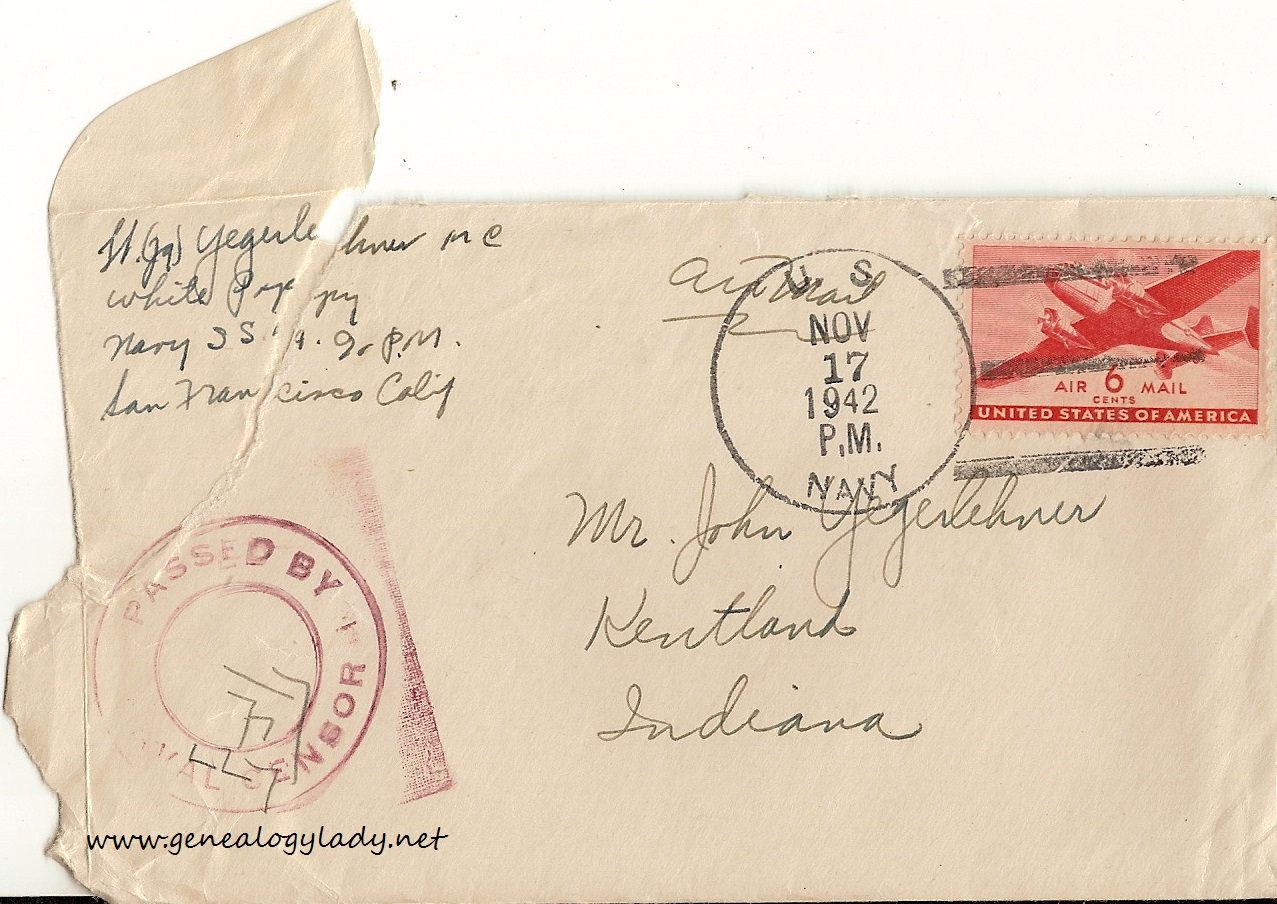 Lt.(jg) Yegerlehner M C
White Poppy
Navy
San Francisco Calif
Air Mail
U S
NOV
17
1942
P.M.
NAVY
AIR 6 MAIL
CENTS
UNITED STATES OF AMERICA
Mr. John Yegerlehner
Kentland
Indiana
PASSED BY
NAVAL CENSOR
www.genealogylady.net